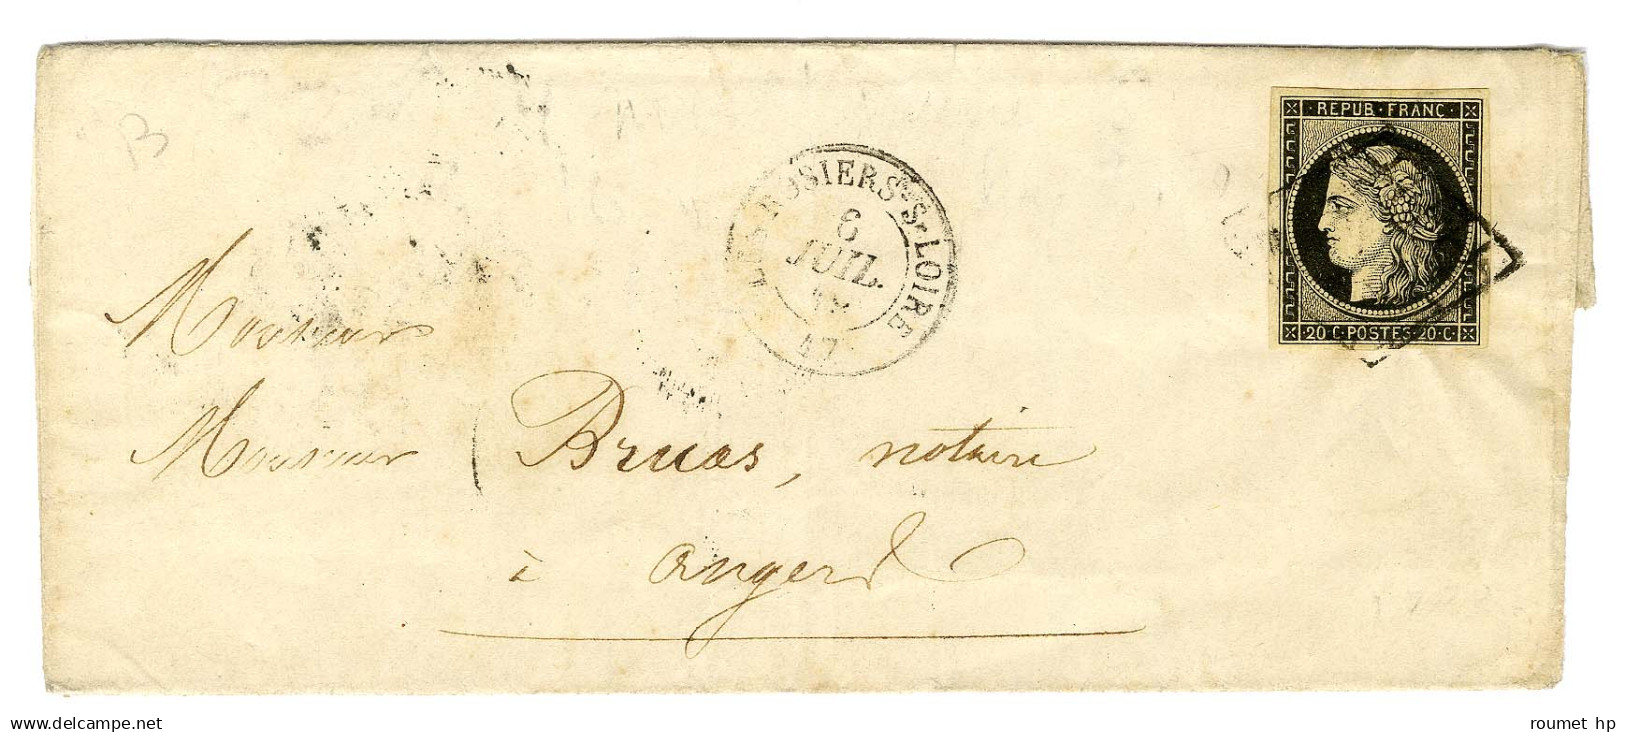 B
REPUB·FRANC·
20·C·POSTES·20·C·
LES ROSIERS-S-LOIRE
8
JUIL.
47
Monsieur
Monsieur Bruas, notaire
à angers
www.delcampe.net
roumet hp